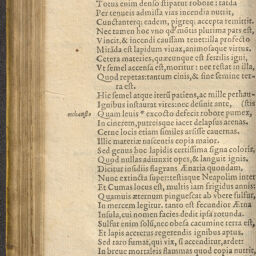 Totus enim denso stipatur robore: tarda
Per tenueis admissa vias incendia nutrit,
Cunctanterq; eadem, pigreq; accepta remittit.
Nec tamen hoc vno qd' motus plurima pars est,
Vincit, & incendi causam tenet: illa profecto
Mirāda est lapidum viuax, animosaque virtus.
Cetera materies, quæcunque est fertilis igni,
Vt semel accensa est, moritur: nec restat in illa,
Quod repetas: tantum cinis, & sine semine ter-
ra est.
Hic semel atque iterū patiens, ac mille perhau-
Ignibus instaurat vires: nec desinit ante, (stis
Quam leuis * excocto defecit robore pumex,
In cinerem, putreisque iacet delapsus arenas.
Cerne locis etiam similes arsisse cauernas.
Illic materiæ nascentis copia maior.
Sed genus hoc lapidis certissima signa coloris,
Quod nullas adiunxit opes, & languit ignis.
Dicitur insidiis flagrans Ænaria quondam,
Nunc extincta super: testisque Neapolim inter
Et Cumas locus est, multis iam frigidus annis:
Quamuis æternum pinguescat ab vbere sulfur,
In mercem legitur. tanto est fecundior Ætna
Insula, cui nomen facies dedit ipsa rotunda.
Sulfur enim solū, nec obesa cacumine terra est,
Et lapis accessus regenerandis ignibus aptus,
Sed raro fumat, qui vix, si accenditur, ardet:
In breue mortaleis flammas quod copia nutrit,